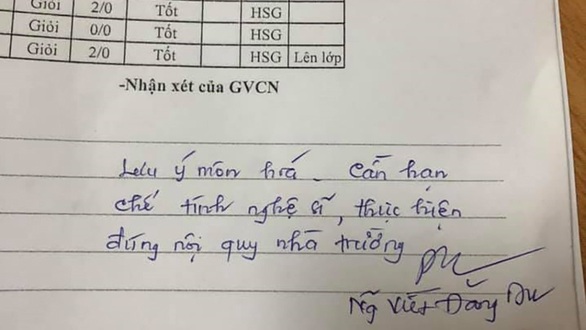 Giỏi 2/0 Tốt HSG
Giỏi 0/0 Tốt HSG
Giỏi 2/0 Tốt HSG Lên lớp
-Nhận xét của GVCN
Lưu ý môn hoá. Cần hạn
chế tính nghệ sĩ, thực hiện
đúng nội quy nhà trường
Ng Viết Đăng Du